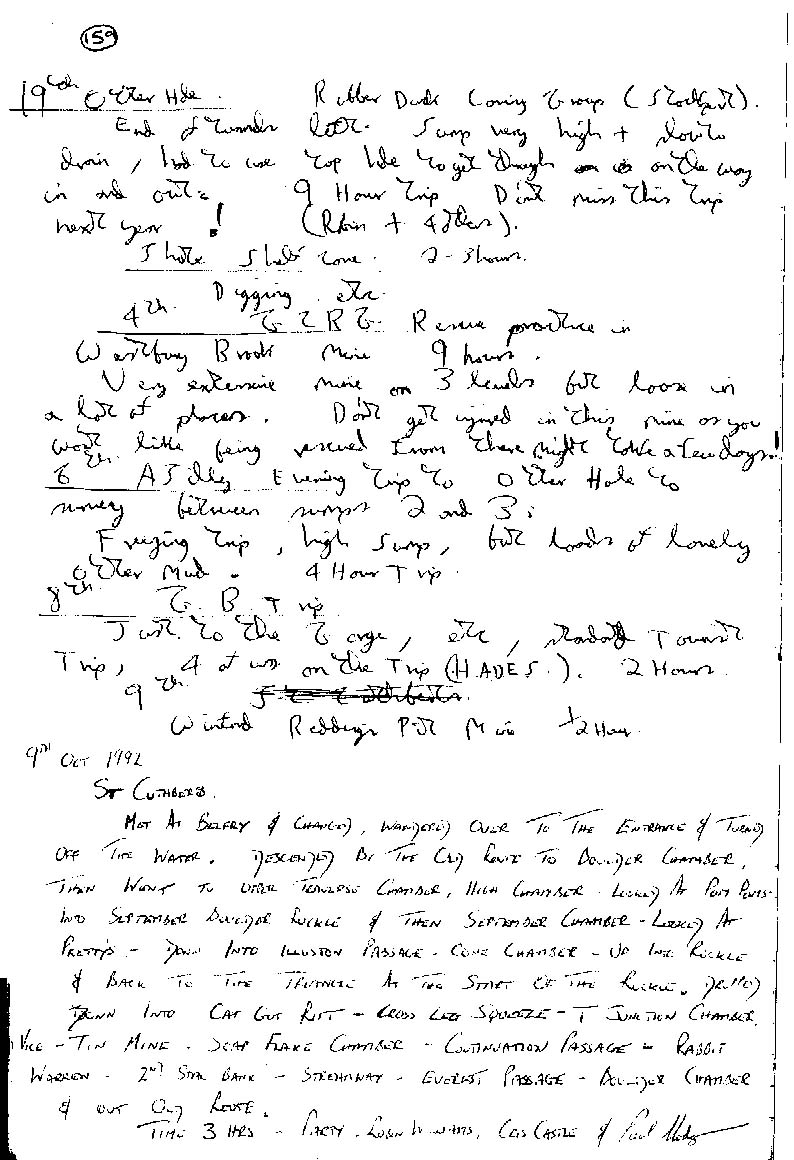 159
19th Otter Hole. Rubber Duck Caving Group (Stockport).
End of Wonder Sump very high + slow to
drain, had to use top hole to get though on the way
in and out. 9 Hour Trip Don't miss this trip
next year! (Robin + 4 others).
2-3 hours.
Digging etc
4th Rescue practice in
Westbury Brook Mine 9 hours.
Very extensive mine on 3 levels but loose in
a lot of places. Don't get injured in this mine as you
wont like being rescued from there might take a few days!
6th A Silly Evening trip to Otter Hole to
survey between sumps 2 and 3.
Freezing trip, high Sump, but loads of lovely
Otter Mud. 4 Hour Trip.
8th G. B. Trip
Just to the Gorge, etc, standard Tourist
Trip, 4 of us on the Trip (HADES.). 2 Hours.
9th
Winford Reddings Pit Mine 1/2 Hour.
9TH OCT 1992
ST CUTHBERTS.
MET AT BELFRY & CHANGED, WANDERED OVER TO THE ENTRANCE & TURNED
OFF THE WATER. DESCENDED BY THE OLD ROUTE TO BOULDER CHAMBER,
THEN WENT TO UPPER TRAVERSE CHAMBER, HIGH CHAMBER - LOOKED AT PONY PONTS.
INTO SEPTEMBER BOULDER RUCKLE & THEN SEPTEMBER CHAMBER - LOOKED AT
PRETTYS - DOWN INTO ILLUSION PASSAGE - CONE CHAMBER - UP INTO RUCKLE
& BACK TO THE TRIANGLE AT THE START OF THE RUCKLE. DROPPED
DOWN INTO CAT GUT RIFT - CROSS LEG SQUEEZE - T JUNCTION CHAMBER.
VICE - TIN MINE. SOAP FLAKE CHAMBER - CONTINUATION PASSAGE - RABBIT
WARREN - 2ND STAL BANK - STREAMWAY - EVEREST PASSAGE - BOULDER CHAMBER
& OUT OLD ROUTE.
TIME 3 HRS - PARTY, ROBIN WILLIAMS, CRIS CASTLE & Paul